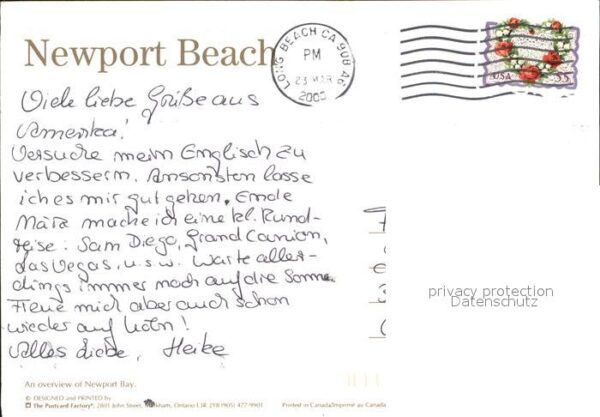 Newport Beach
LONG BEACH CA 908
PM
23 MAR
2000
USA
55
Viele liebe Grüße aus
Amerika!
Versuche mein Englisch zu
verbessern. Ansonsten lasse
ich es mir gut gehen. Ende
März mache ich eine kl. Rund-
reise: San Diego, Grand Canion,
Las Vegas, u.s.w. Warte aller-
dings immer noch auf die Sonne.
Freue mich aber auch schon
wieder auf
Alles Liebe, Heike
privacy protection
Datenschutz
An overview of Newport Bay.
© DESIGNED and PRINTED by
The Postcard Factory® 2801 John Street, Ontario L3R 2Y8 (905) 477-9901
Printed in Canada/Imprimé au Canada